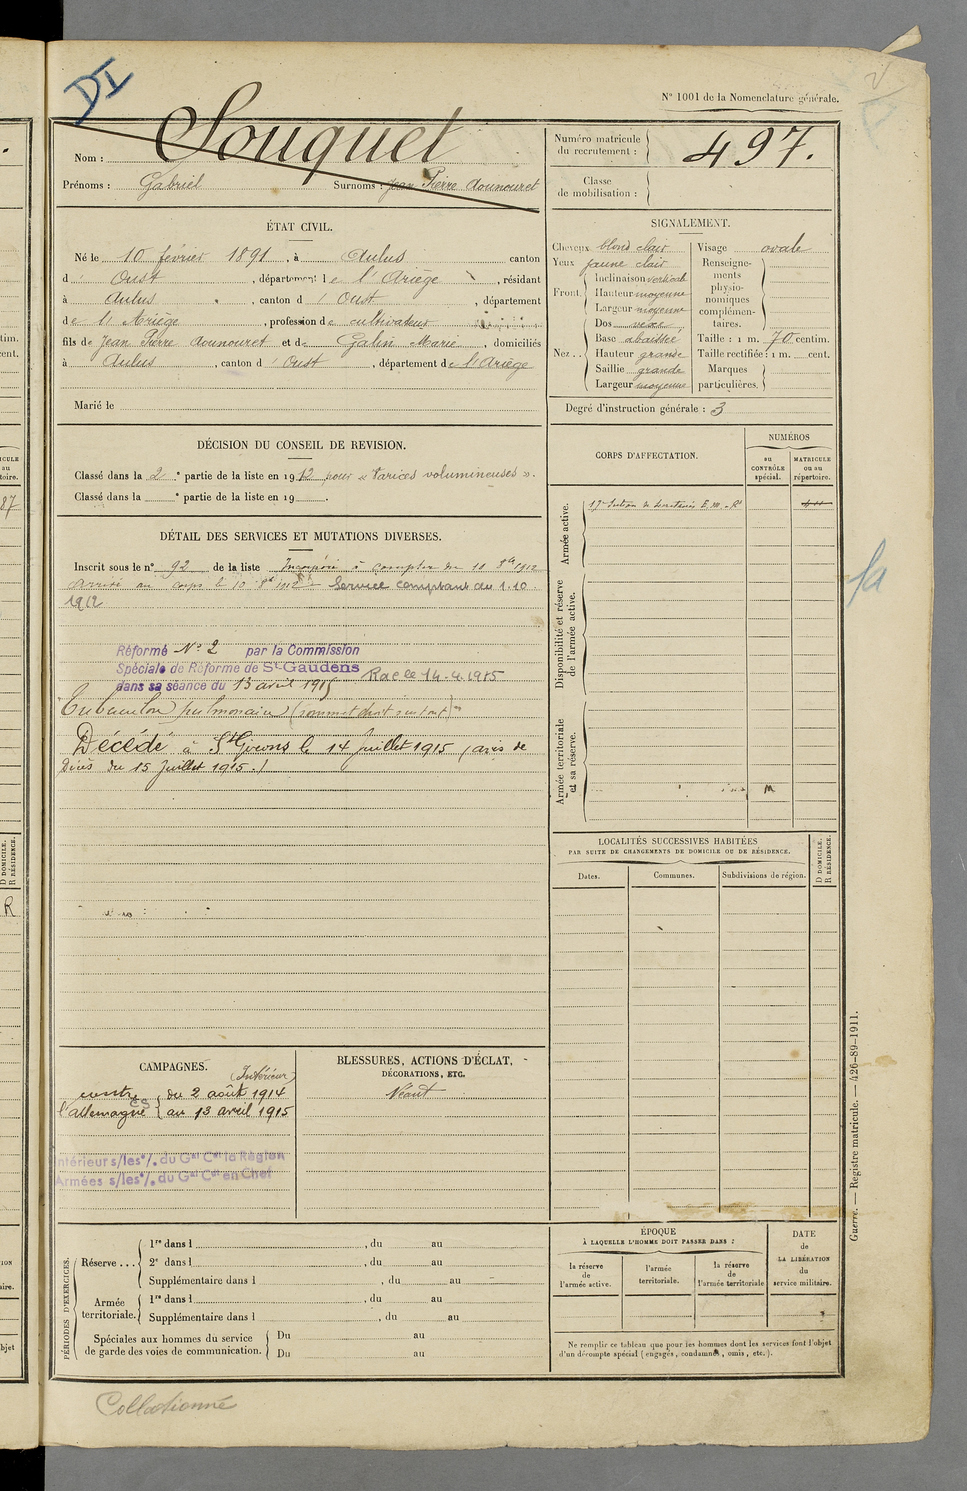 DI
N° 1001 de la Nomenclature générale.
Nom : Souquet
Prénoms : Gabriel Surnoms : Jean Pierre Aounouret
Numéro matricule du recrutement : 497.
Classe de mobilisation :
ÉTAT CIVIL.
Né le 10 février 1891, à Aulus canton
d' Oust, département de l'Ariège, résidant
à Aulus, canton d'Oust, département
de l'Ariège, profession de cultivateur
fils de Jean Pierre Aounouret et de Galin Marie, domiciliés
à Aulus, canton d'Oust, département de l'Ariège
Marié le
SIGNALEMENT.
Cheveux blond clair
Yeux jaune clair
Front. Inclinaison verticale
Hauteur moyenne
Largeur moyenne
Nez . . Dos
Base abaissée
Hauteur grande
Saillie grande
Largeur moyenne
Visage ovale
Renseignements physionomiques complémentaires.
Taille : 1 m. 70 centim.
Taille rectifiée : 1 m. cent.
Marques particulières.
Degré d'instruction générale : 3
DÉCISION DU CONSEIL DE REVISION.
Classé dans la 2e partie de la liste en 1912 pour « Varices volumineuses ».
Classé dans la e partie de la liste en 19 .
CORPS D'AFFECTATION.
NUMÉROS
au CONTRÔLE spécial.
MATRICULE ou au répertoire.
Armée active.
17e Section de Secrétaires E.M.-Rt
Disponibilité et réserve de l'armée active.
Armée territoriale et sa réserve.
DÉTAIL DES SERVICES ET MUTATIONS DIVERSES.
Inscrit sous le n° 92 de la liste Incorporé à compter du 10 8bre 1912
Arrivé au corps le 10 8bre 1912 Service comptant du 1.10.
1912
Réformé N° 2 par la Commission
Spéciale de Réforme de St-Gaudens
dans sa séance du 13 avril 1915 Raé le 14-4.1915
pulmonaire (sommet droit surtout)"
Décédé à St Girons le 14 Juillet 1915 (avis de
Décès du 15 Juillet 1915.)
LOCALITÉS SUCCESSIVES HABITÉES
PAR SUITE DE CHANGEMENTS DE DOMICILE OU DE RÉSIDENCE.
Dates.
Communes.
Subdivisions de région.
D DOMICILE.
R RÉSIDENCE.
CAMPAGNES.
(Intérieur)
contre l'allemagne { du 2 août 1914
au 13 avril 1915
Intérieur s/les °/. du Gal Ct la Région
Armées s/les °/. du Gal Ct en Chef
BLESSURES, ACTIONS D'ÉCLAT,
DÉCORATIONS, ETC.
Néant
PÉRIODES D'EXERCICES.
Réserve . . . 1re dans l , du au
2e dans l , du au
Supplémentaire dans l , du au
Armée territoriale. 1re dans l , du au
Supplémentaire dans l , du au
Spéciales aux hommes du service de garde des voies de communication. Du au
Du au
ÉPOQUE
À LAQUELLE L'HOMME DOIT PASSER DANS :
la réserve de l'armée active.
l'armée territoriale.
la réserve de l'armée territoriale
DATE de LA LIBÉRATION du service militaire.
Ne remplir ce tableau que pour les hommes dont les services font l'objet
d'un décompte spécial (engagés, condamnés, omis, etc.).
Guerre. — Registre matricule. — 426-89-1911.
Collationné